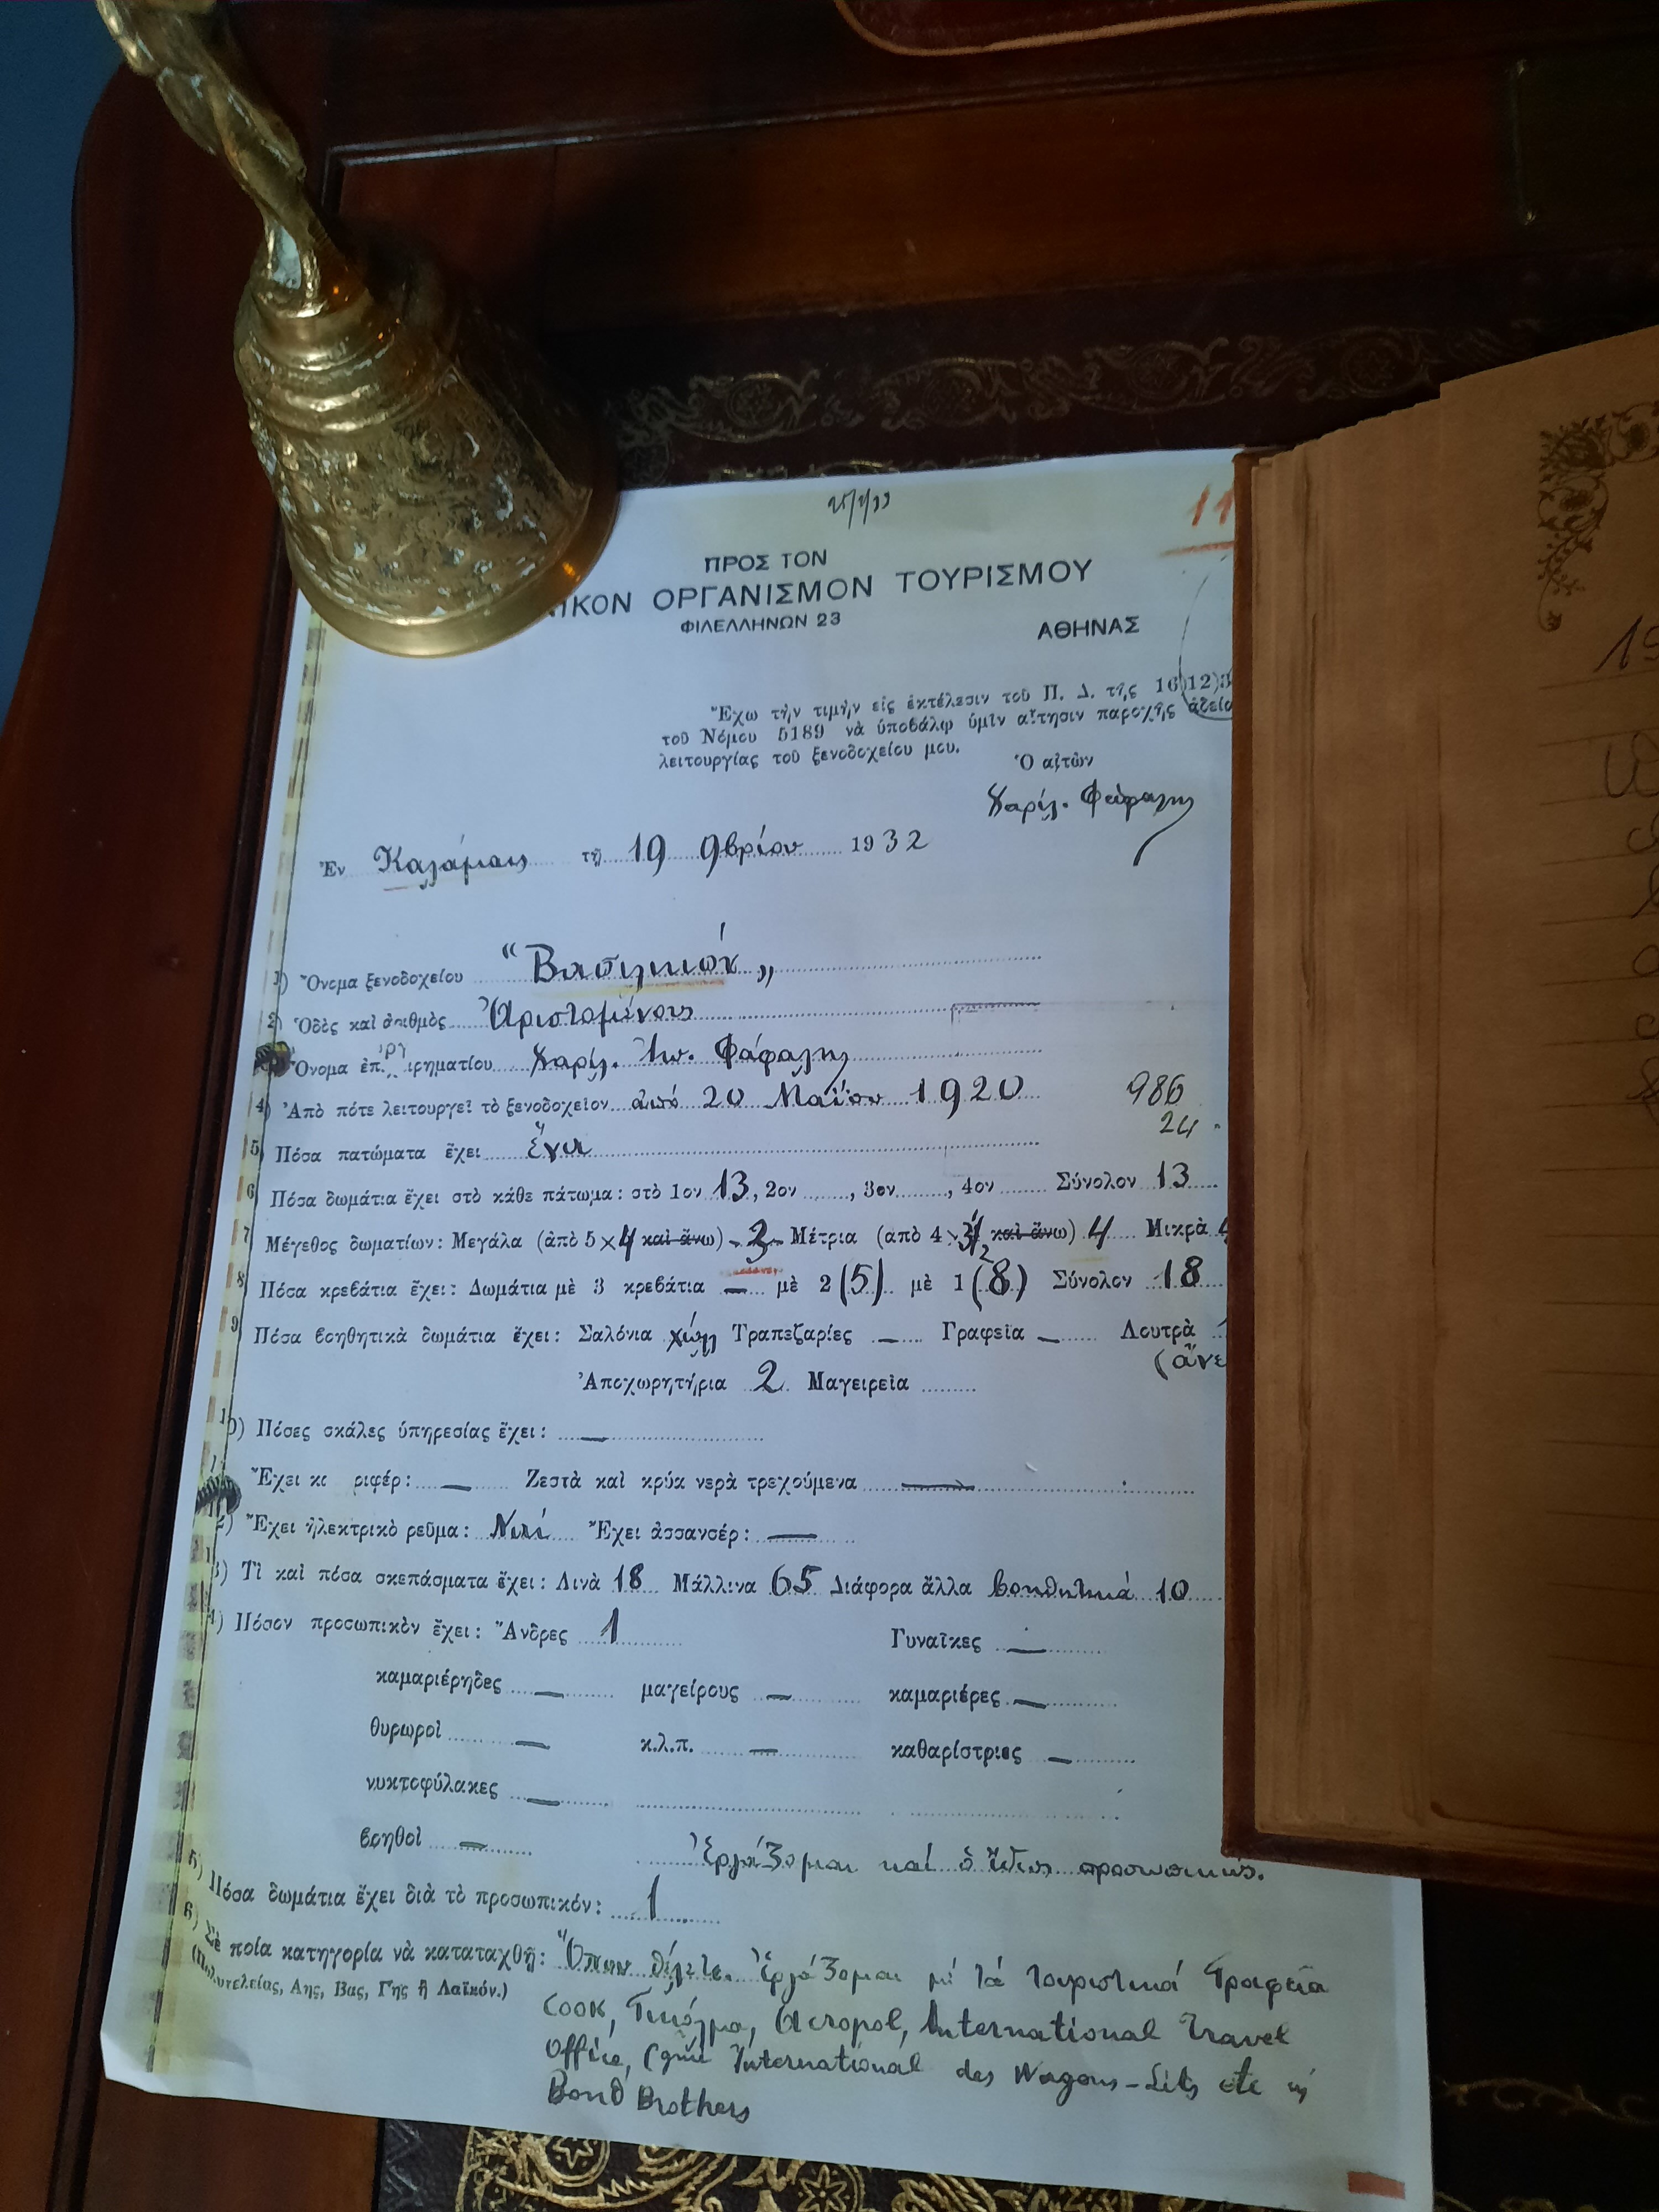 11
ΠΡΟΣ ΤΟΝ
ΙΚΟΝ ΟΡΓΑΝΙΣΜΟΝ ΤΟΥΡΙΣΜΟΥ
ΦΙΛΕΛΛΗΝΩΝ 23
ΑΘΗΝΑΣ
Ἔχω τὴν τιμὴν εἰς ἐκτέλεσιν τοῦ Π. Δ. τῆς 16)12)3
τοῦ Νόμου 5189 νὰ ὑποβάλῳ ὑμῖν αἴτησιν παροχῆς ἀδεία
λειτουργίας τοῦ ξενοδοχείου μου.
Ὁ αἰτῶν
Χαρίλ. Φάφαλης
Ἐν Καλάμαις τῇ 19 9βρίου 1932
1) Ὄνομα ξενοδοχείου "Βασιλικόν"
2) Ὁδὸς καὶ ἀριθμὸς Ἀριστομένους
Ὄνομα ἐπ ιρηματίου Χαρίλ. Φάφαλης
4) Ἀπὸ πότε λειτουργεῖ τὸ ξενοδοχεῖον ἀπό 20 Μαΐου 1920 986
24
5) Πόσα πατώματα ἔχει ἕνα
6 Πόσα δωμάτια ἔχει στὸ κάθε πάτωμα: στὸ 1ον 13, 2ον , 3ον , 4ον Σύνολον 13
7 Μέγεθος δωματίων: Μεγάλα (ἀπὸ 5×4 καὶ ἄνω) 3 Μέτρια (ἀπὸ 4×3½ καὶ ἄνω) 4 Μικρὰ
8 Πόσα κρεβάτια ἔχει: Δωμάτια μὲ 3 κρεβάτια — μὲ 2 (5) μὲ 1 (8) Σύνολον 18
9 Πόσα βοηθητικὰ δωμάτια ἔχει: Σαλόνια χώλ Τραπεζαρίες — Γραφεῖα — Λουτρὰ
(ἄνε
Ἀποχωρητήρια 2 Μαγειρεῖα
0) Πόσες σκάλες ὑπηρεσίας ἔχει: —
Ἔχει κα ριφέρ: — Ζεστὰ καὶ κρύα νερὰ τρεχούμενα —
2) Ἔχει ἠλεκτρικὸ ρεῦμα: Ναί Ἔχει ἀσσανσέρ: —
3) Τὶ καὶ πόσα σκεπάσματα ἔχει: Λινὰ 18 Μάλλινα 65 Διάφορα ἄλλα βοηθητικά 10
4) Πόσον προσωπικὸν ἔχει: Ἄνδρες 1 Γυναῖκες —
καμαριέρηδες — μαγείρους — καμαριέρες —
θυρωροὶ — κ.λ.π. — καθαρίστριες —
νυκτοφύλακες —
βοηθοὶ — Ἐργάζομαι καί ὁ ἴδιος προσωπικῶς.
5) Πόσα δωμάτια ἔχει διὰ τὸ προσωπικόν: 1
6) Σὲ ποία κατηγορία νὰ καταταχθῇ: Ὅπου θέλετε. Ἐργάζομαι μέ τά τουριστικά Γραφεῖα
(Πολυτελείας, Αης, Βας, Γης ἢ Λαϊκόν.)
Cook, Γκιόλμα, Acropol, International Travel
Office, International des Wagons-Lits etc
Bond Brothers
19